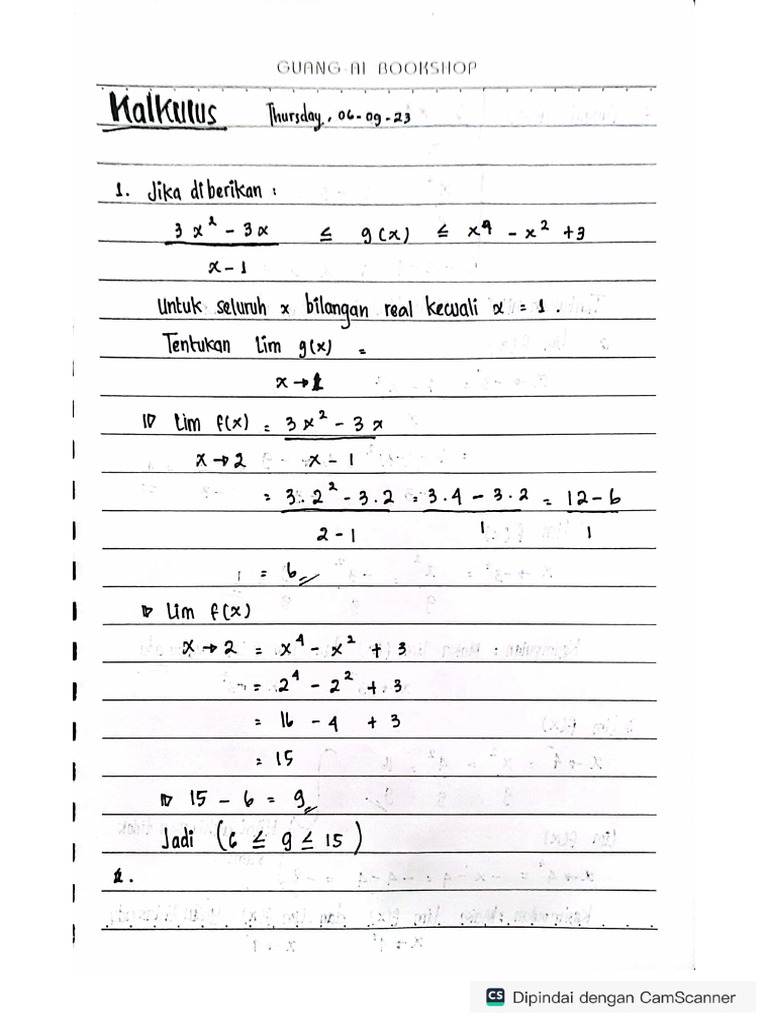 GUANG-AI BOOKSHOP
Kalkulus Thursday, 06-09-23
1. Jika diberikan :
3x² - 3x ≤ g(x) ≤ x⁴ - x² + 3
x - 1
Untuk seluruh x bilangan real kecuali x = 1.
Tentukan lim g(x) =
x → 1
▷ Lim f(x) = 3x² - 3x
x → 2 x - 1
= 3.2² - 3.2 = 3.4 - 3.2 = 12 - 6
2 - 1 1 1
= 6
▷ Lim f(x)
x → 2 = x⁴ - x² + 3
= 2⁴ - 2² + 3
= 16 - 4 + 3
= 15
▷ 15 - 6 = 9
Jadi (6 ≤ 9 ≤ 15)
2.
CS Dipindai dengan CamScanner